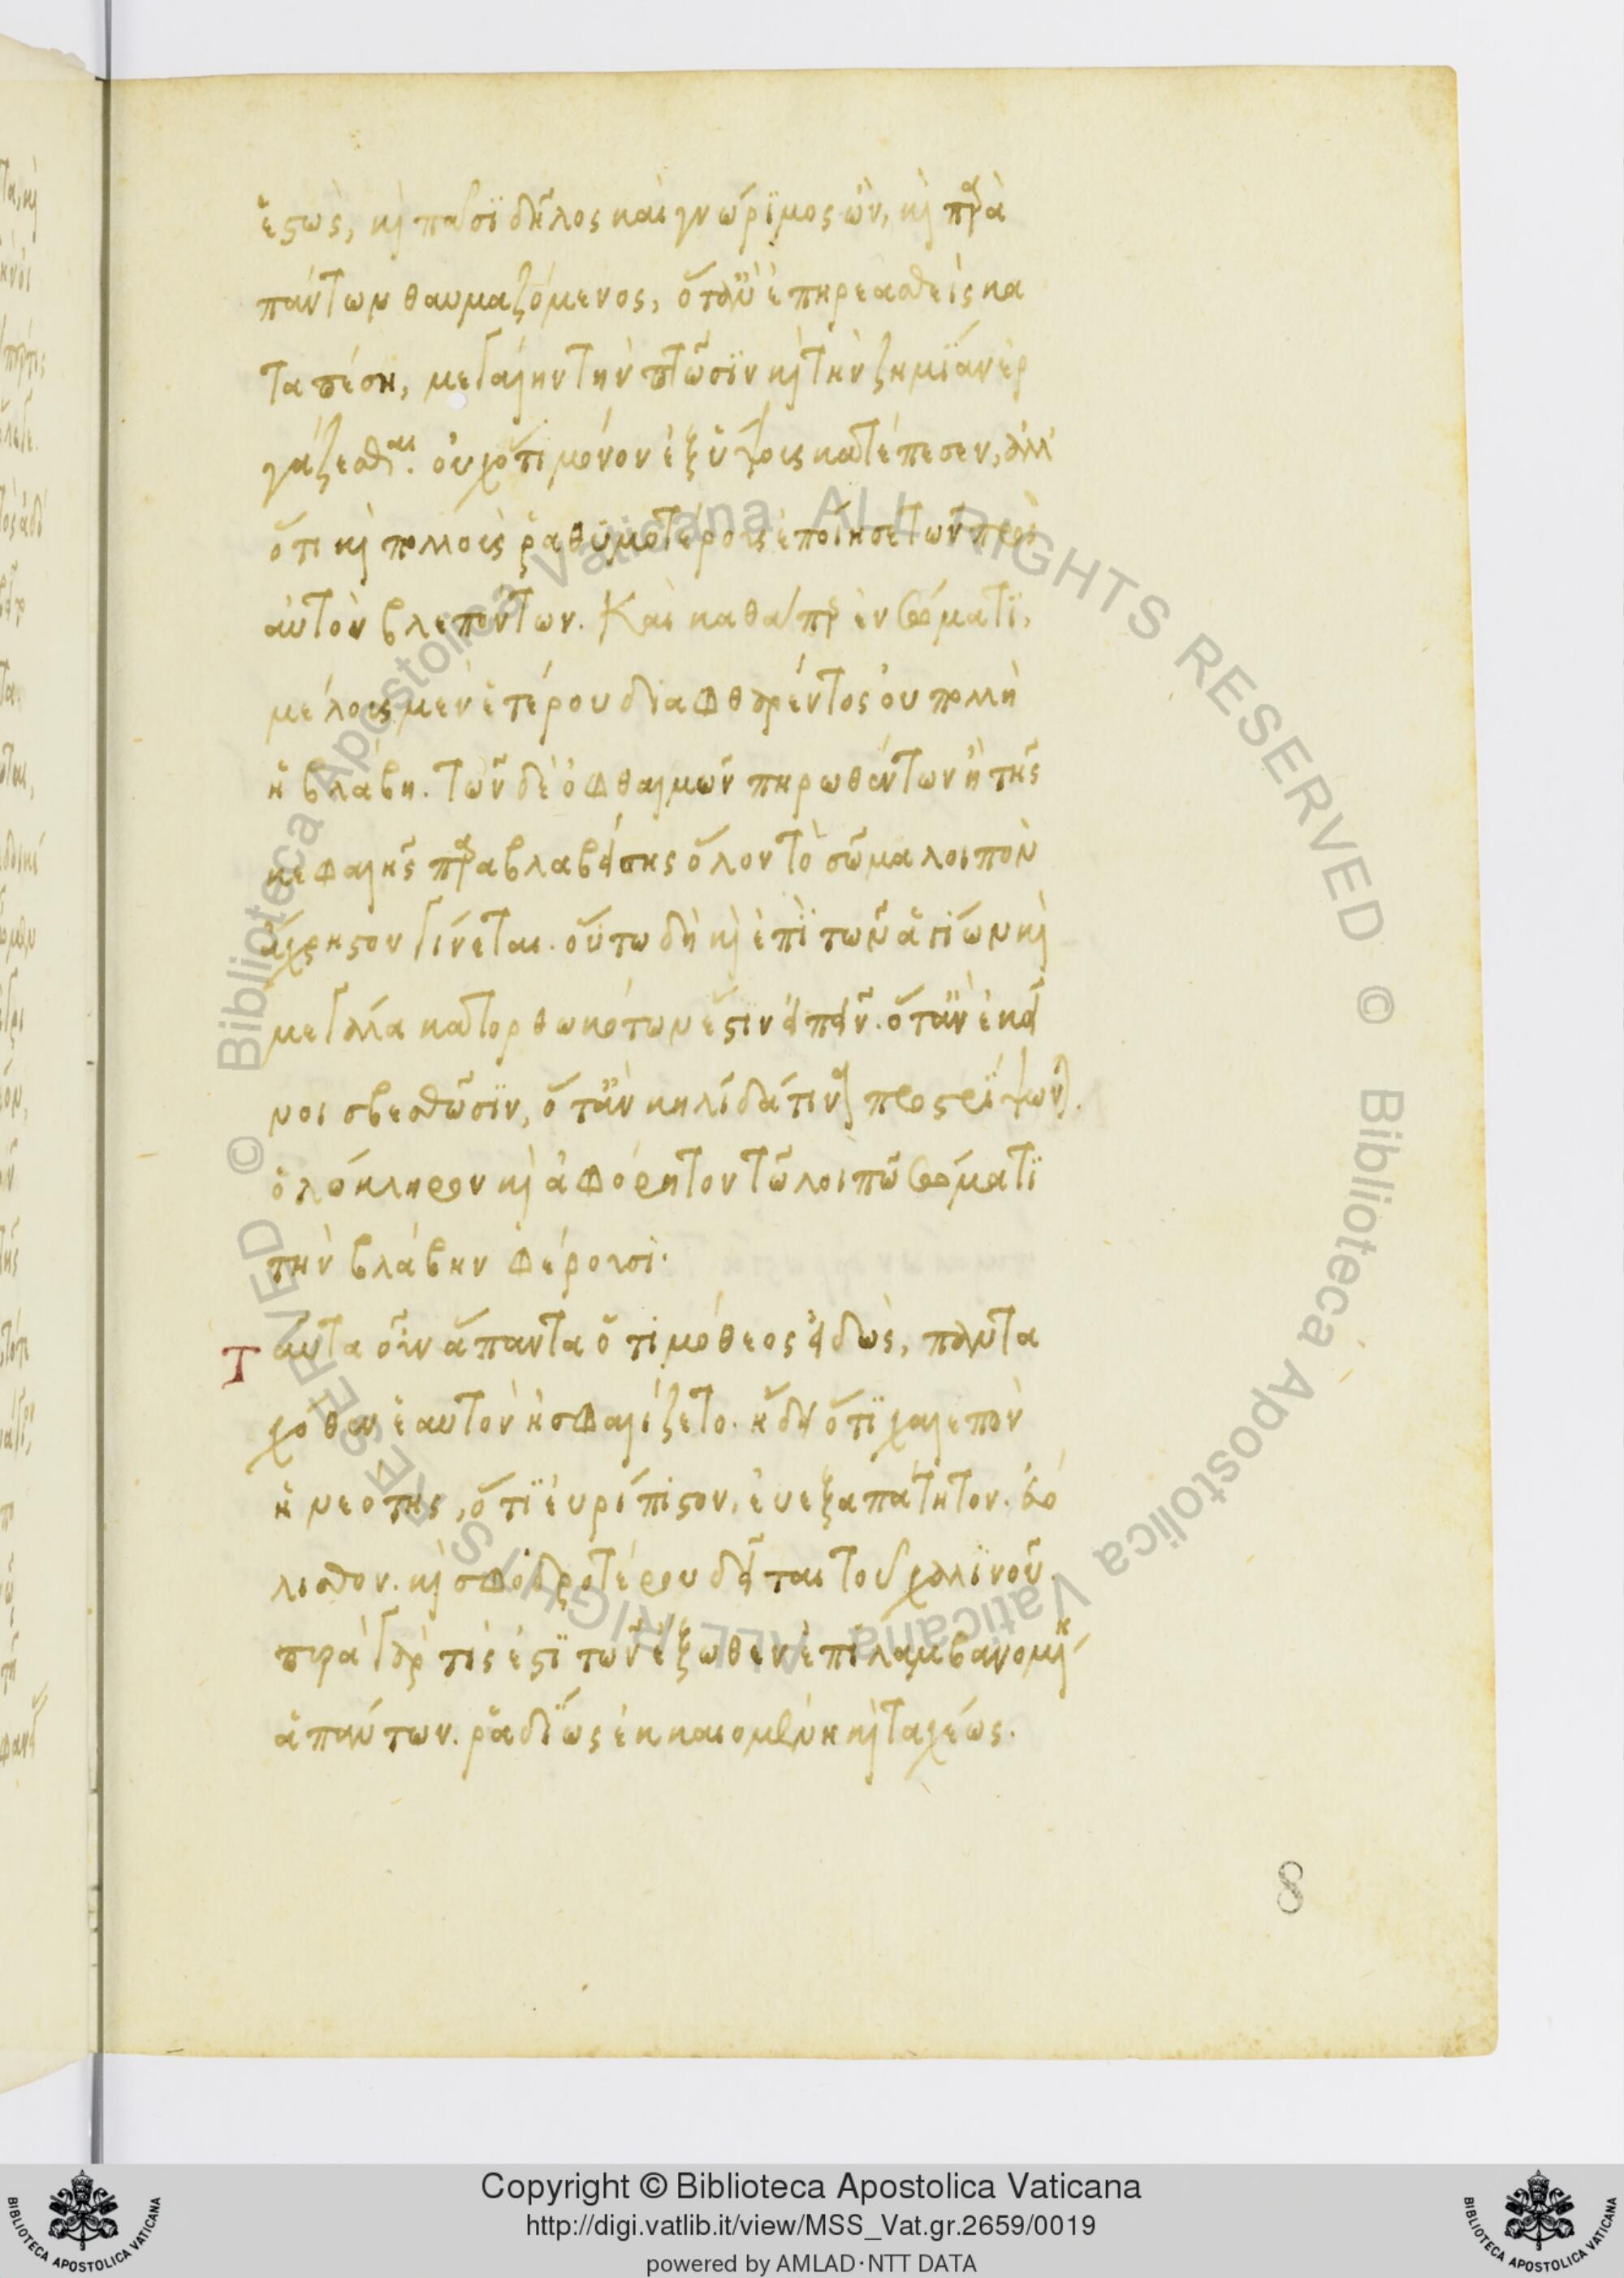 ἑστὼς, καὶ πᾶσι δῆλος καὶ γνώριμος ὢν, καὶ παρὰ
πάντων θαυμαζόμενος, ὅταν ἐπηρεασθεὶς κα
ταπέση, μεγάλην τὴν πτῶσιν καὶ τὴν ζημίαν ἐρ
γάζεσθαι. οὐχ ὅτι μόνον ἐξ ὕψους κατέπεσεν, ἀλλ'
ὅτι καὶ πολλοὺς ῥαθυμοτέρους ἐποίησε τῶν πρὸς
αὐτὸν βλεπόντων. Καὶ καθάπερ ἐν σώματι,
μέλους μὲν ἑτέρου διαφθαρέντος οὐ πολλὴ
ἡ βλάβη. τῶν δὲ ὀφθαλμῶν πηρωθέντων ἢ τῆς
κεφαλῆς παραβλαβείσης ὅλον τὸ σῶμα λοιπὸν
ἄχρηστον γίνεται. οὕτω δὴ καὶ ἐπὶ τῶν ἁγίων καὶ
μεγάλα κατορθωκότων ἔστιν εἰπεῖν. ὅταν ἐκεῖ
νοι σβεσθῶσιν, ὅταν κηλίδα τινὰ προστρίψωνται.
ὁλόκληρον καὶ ἀφόρητον τῶ λοιπῶ σώματι
τὴν βλάβην φέρουσι.
Ταῦτα οὖν ἅπαντα ὁ τιμόθεος εἰδὼς, πάντα
χόθεν ἑαυτὸν ἠσφαλίζετο. ἤδει ὅτι χαλεπὸν
ἡ νεότης, ὅτι εὐρίπιστον, εὐεξαπάτητον. εὐό
λισθον. καὶ σφοδροτέρου δεῖται τοῦ χαλινοῦ.
πυρὰ γάρ τις ἐστι τῶν ἔξωθεν ἐπιλαμβανομένη
ἁπάντων. ῥαδίως ἐκκαιομένη καὶ ταχέως.
8
© Biblioteca Apostolica Vaticana ALL RIGHTS RESERVED © Biblioteca Apostolica Vaticana ALL RIGHTS RESERVED
Copyright © Biblioteca Apostolica Vaticana
http://digi.vatlib.it/view/MSS_Vat.gr.2659/0019
powered by AMLAD·NTT DATA
BIBLIOTECA APOSTOLICA VATICANA
BIBLIOTECA APOSTOLICA VATICANA